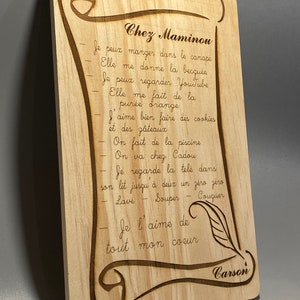 Chez Maminou
- Je peux manger dans le canapé
- Elle me donne la becquée
- Je peux regarder Youtube
- Elle me fait de la
purée orange
- J'aime bien faire des cookies
et des gâteaux
- On fait de la piscine
- On va chez Cadou
- Je regarde la télé dans
son lit jusqu'à deux un zéro zéro
- Lavé - Souper - Couquer
- Je t'aime de
tout mon coeur
Carson